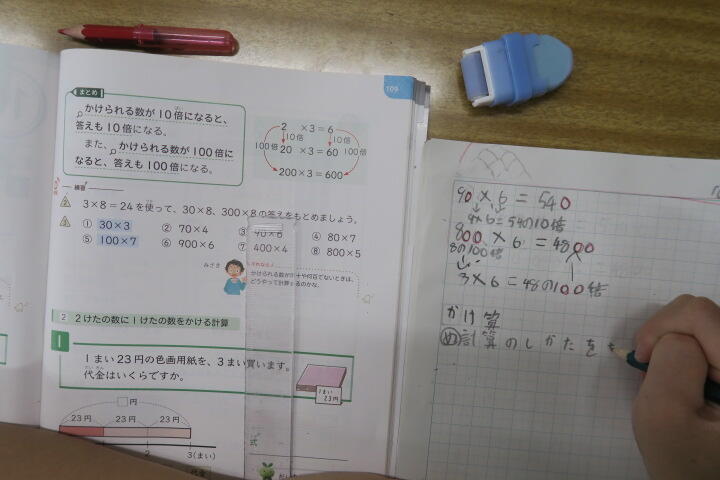 109
まとめ
かけられる数が10倍になると、
答えも10倍になる。
また、かけられる数が100倍に
なると、答えも100倍になる。
2 ×3＝6
10倍 10倍
100倍 20 ×3＝60 100倍
200×3＝600
練習
3×8＝24を使って、30×8、300×8の答えをもとめましょう。
① 30×3 ② 70×4 ③ 40×6 ④ 80×7
⑤ 100×7 ⑥ 900×6 ⑦ 400×4 ⑧ 800×5
みさき
かけられる数が何十や何百でないときは、
どうやって計算するのかな。
2 2けたの数に1けたの数をかける計算
1
1まい23円の色画用紙を、3まい買います。
代金はいくらですか。
1まい
23円
□円
23円 23円 23円
2 3(まい)
代金
式
90×6＝540
＝54の10倍
800×6＝4800
8の100倍
×6＝48の100倍
かけ算
め 計算のしかたを